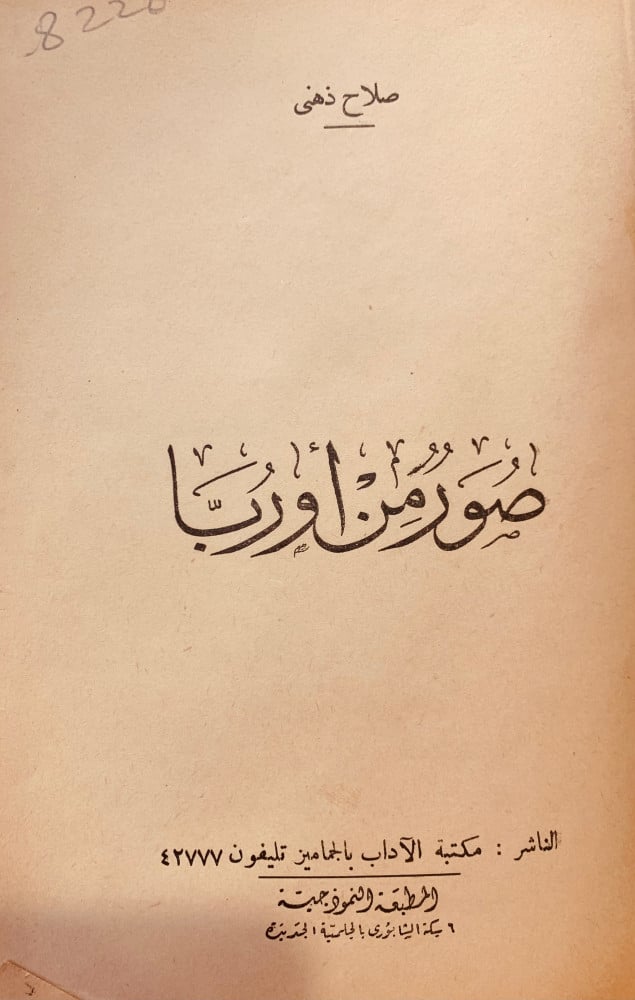 8226
صلاح ذهنى
صُوَرٌ مِنْ أُورُبَّا
الناشر : مكتبة الآداب بالجماميز تليفون ٤٢٧٧٧
المطبعة النموذجية
٦ سكة الشابورى بالحلمية الجديدة